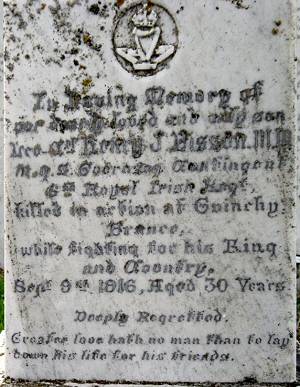 In Loving Memory of
our dearly loved and only son
Lce. Cpl Henry J. Bisson. M.M.
M.G.S. Guernsey Contingent
6th Royal Irish Regt,
killed in action at Guinchy
France,
while fighting for his King
and Country,
Sept 9th 1916, Aged 30 Years.
Deeply Regretted.
Greater love hath no man than to lay
down his life for his friends.